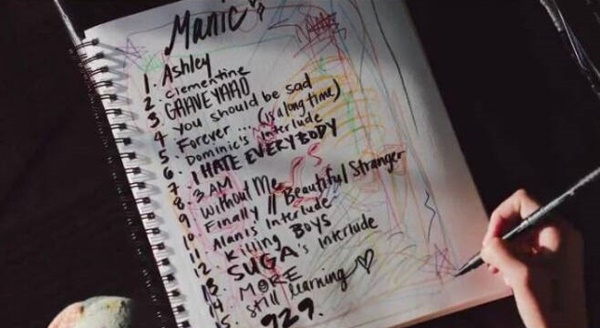 Manic
1. Ashley
2. clementine
3. GRAVEYARD
4. you should be sad
5. Forever ... (is a long time)
6. Dominic's Interlude
7. I HATE EVERYBODY
8. 3 AM
9. Without Me
10. Finally // Beautiful Stranger
11. Alanis Interlude
12. Killing BOYS
13. SUGA's Interlude
14. MORE
15. Still learning
929.